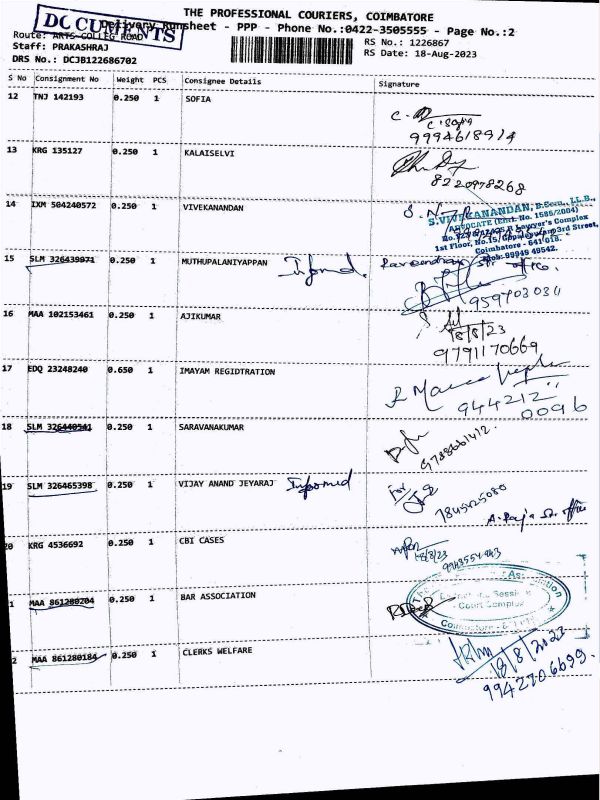 THE PROFESSIONAL COURIERS, COIMBATORE
DOCUMENTS
Delivery Runsheet - PPP - Phone No.:0422-3505555 - Page No.:2
Route: ARTS COLLEG ROAD
RS No.: 1226867
Staff: PRAKASHRAJ
RS Date: 18-Aug-2023
DRS No.: DCJB122686702
S No Consignment No Weight PCS Consignee Details Signature
12 TNJ 142193 0.250 1 SOFIA
C. Sofia
9994618914
13 KRG 135127 0.250 1 KALAISELVI
8220978268
14 IXM 504240572 0.250 1 VIVEKANANDAN
S.VIVEKANANDAN, B.Com., LL.B.,
ADVOCATE (Enrl. No. 1585/2004)
Lawyer's Complex
1st Floor, No.15/ 3rd Street,
Coimbatore - 641 018.
Mob: 99949 49542.
15 SLM 326439071 0.250 1 MUTHUPALANIYAPPAN Informed.
Sr. office.
959703031
16 MAA 102153461 0.250 1 AJIKUMAR
18/8/23
9791170669
17 EDQ 23248240 0.650 1 IMAYAM REGIDTRATION
944212
0096
18 SLM 326440541 0.250 1 SARAVANAKUMAR
9788661412.
19 SLM 326465398 0.250 1 VIJAY ANAND JEYARAJ Informed
for
7845425080
A. Raja Sr. office
20 KRG 4536692 0.250 1 CBI CASES
18/8/23
1 MAA 861280204 0.250 1 BAR ASSOCIATION
Association
Court Complex
2 MAA 861280184 0.250 1 CLERKS WELFARE
18/8/2023
9942706699.